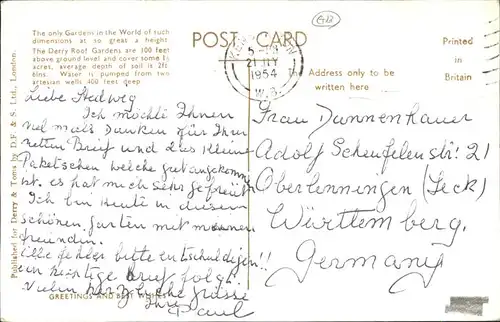 The only Gardens in the World of such
dimensions at so great a height.
The Derry Roof Gardens are 100 feet
above ground level and cover some 1½
acres, average depth of soil is 2ft.
6ins. Water is pumped from two
artesian wells 400 feet deep
POST CARD
5-
21 JLY
1954
W.8.
Printed
in
Britain
The Address only to be
written here
Published for Derry & Toms by D.F. & S. Ltd., London.
Liebe Hedwig
Ich möchte Ihnen
viel mals Danken für Ihren
netten Brief und das kleine
Paketschen welche gut angekommen
ist. es hat mich sehr gefreut
Ich bin Heute in diesen
schönen Garten mit meinen
freundin.
Alle fehler bitte entschuldigen!!
ein richtige brief folgt.
Vielen herzliche grüsse
Ihre
Paul
GREETINGS AND BEST WISHES
Frau Dannenhauer
Adolf Scheufelen str. 21
Oberlenningen (Teck)
Württemberg.
Germany